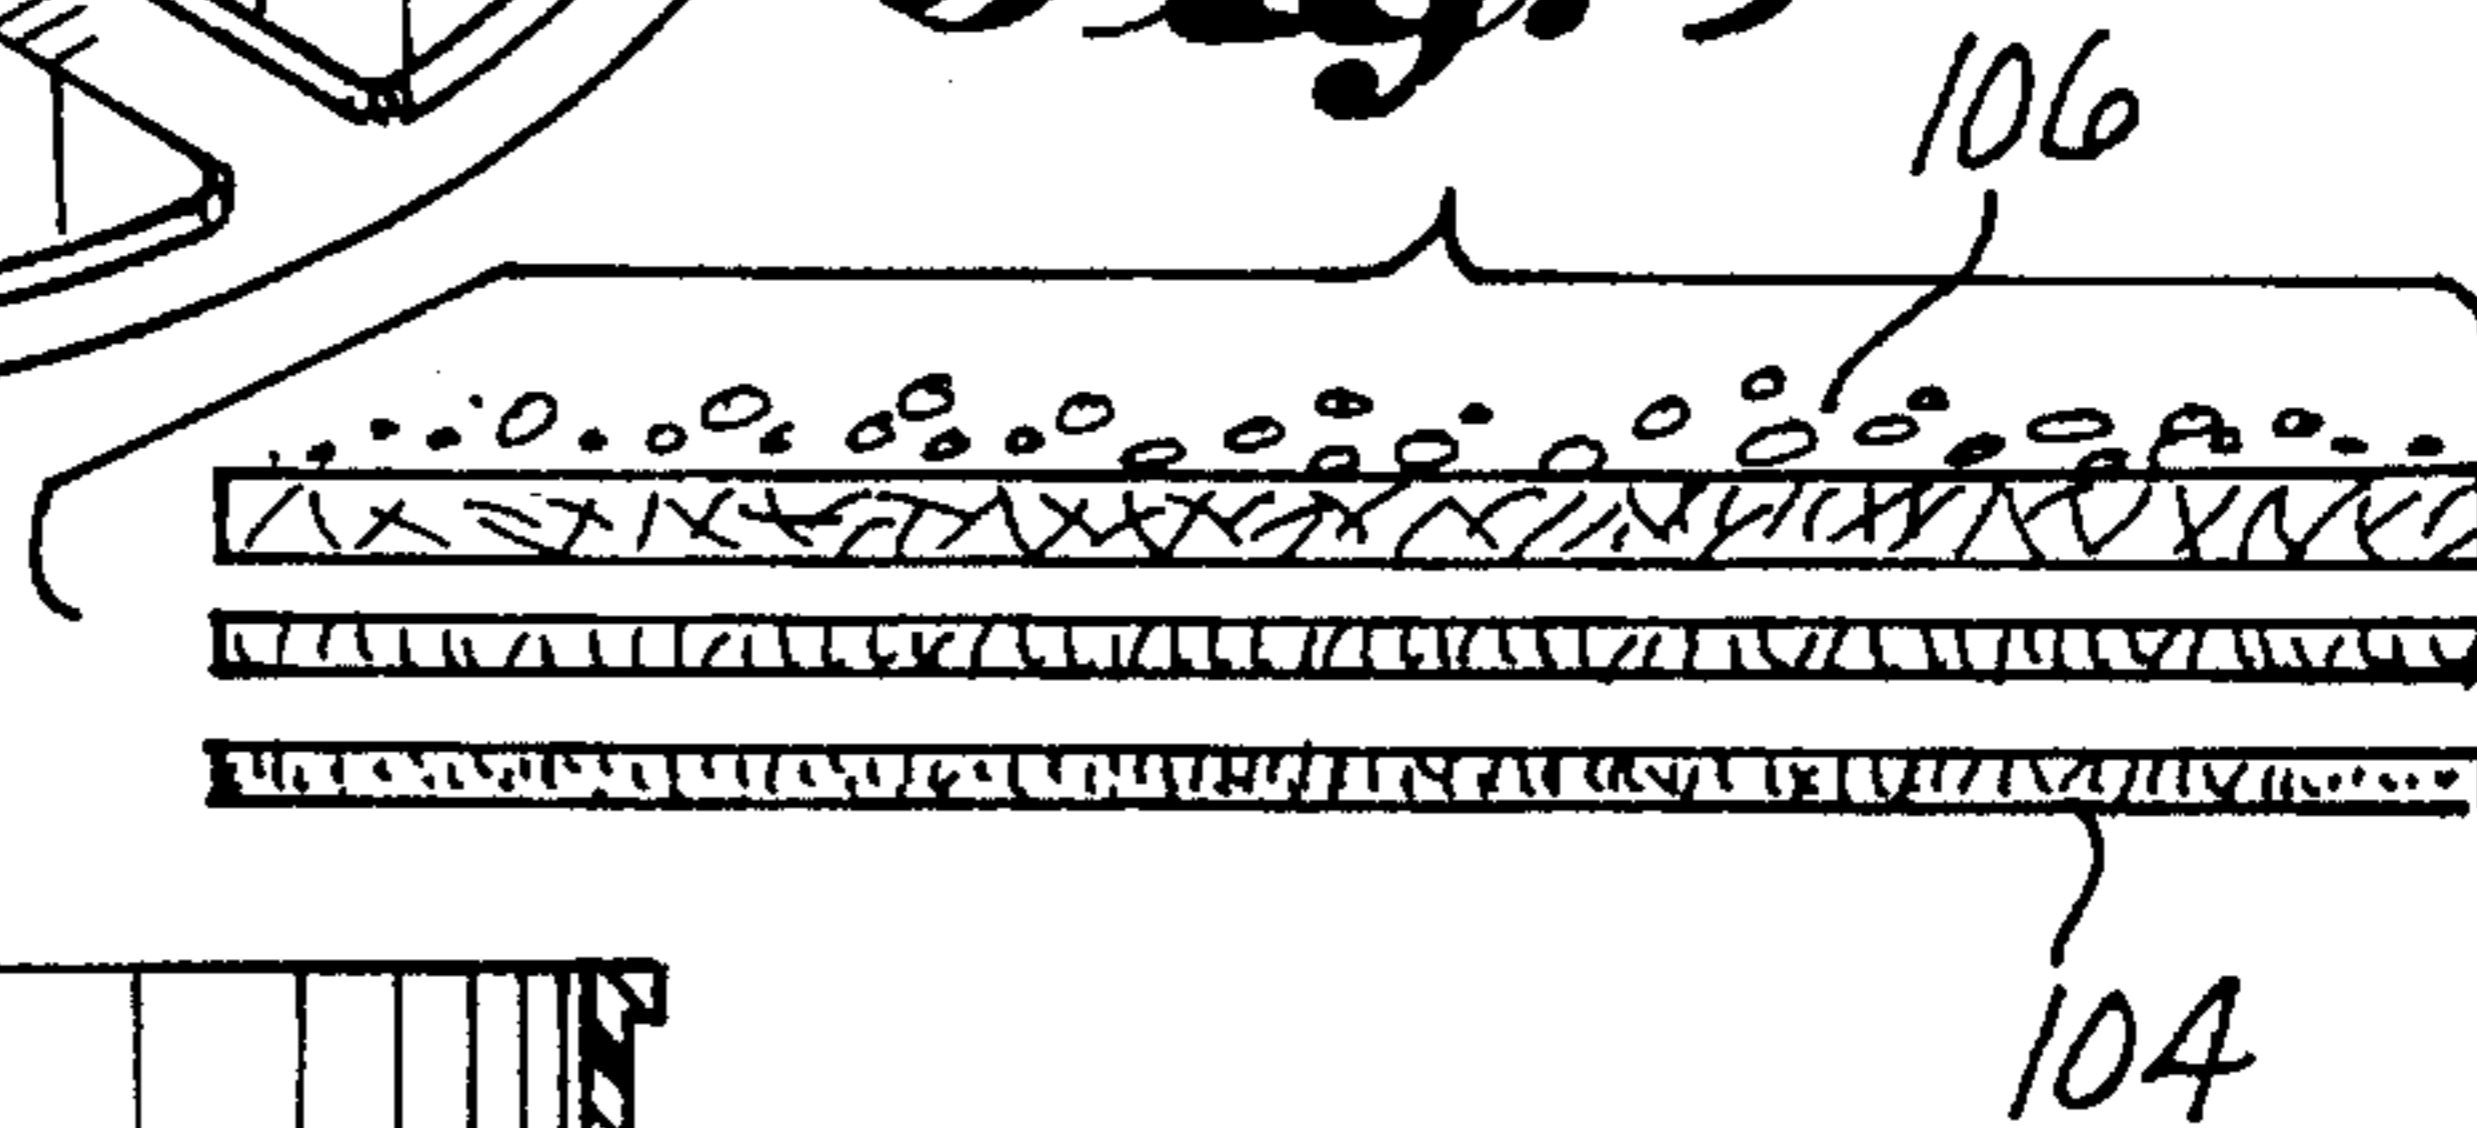 106
104